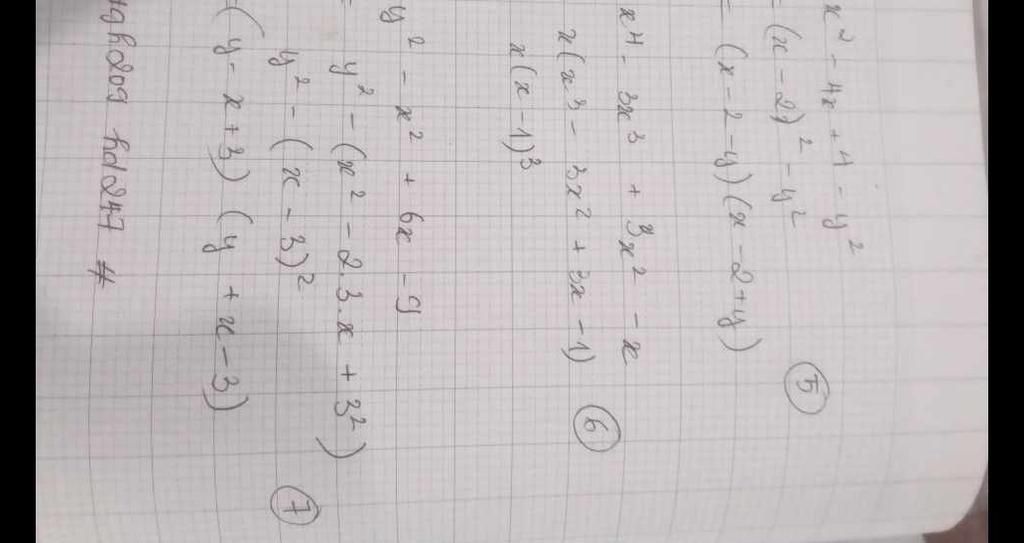 x² - 4x + 4 - y²
= (x - 2)² - y²
= (x - 2 - y) (x - 2 + y)
⑤
x⁴ - 3x³ + 3x² - x
x(x³ - 3x² + 3x - 1)
x(x - 1)³
⑥
y² - x² + 6x - 9
= y² - (x² - 2.3.x + 3²)
y² - (x - 3)²
= (y - x + 3) (y + x - 3)
⑦